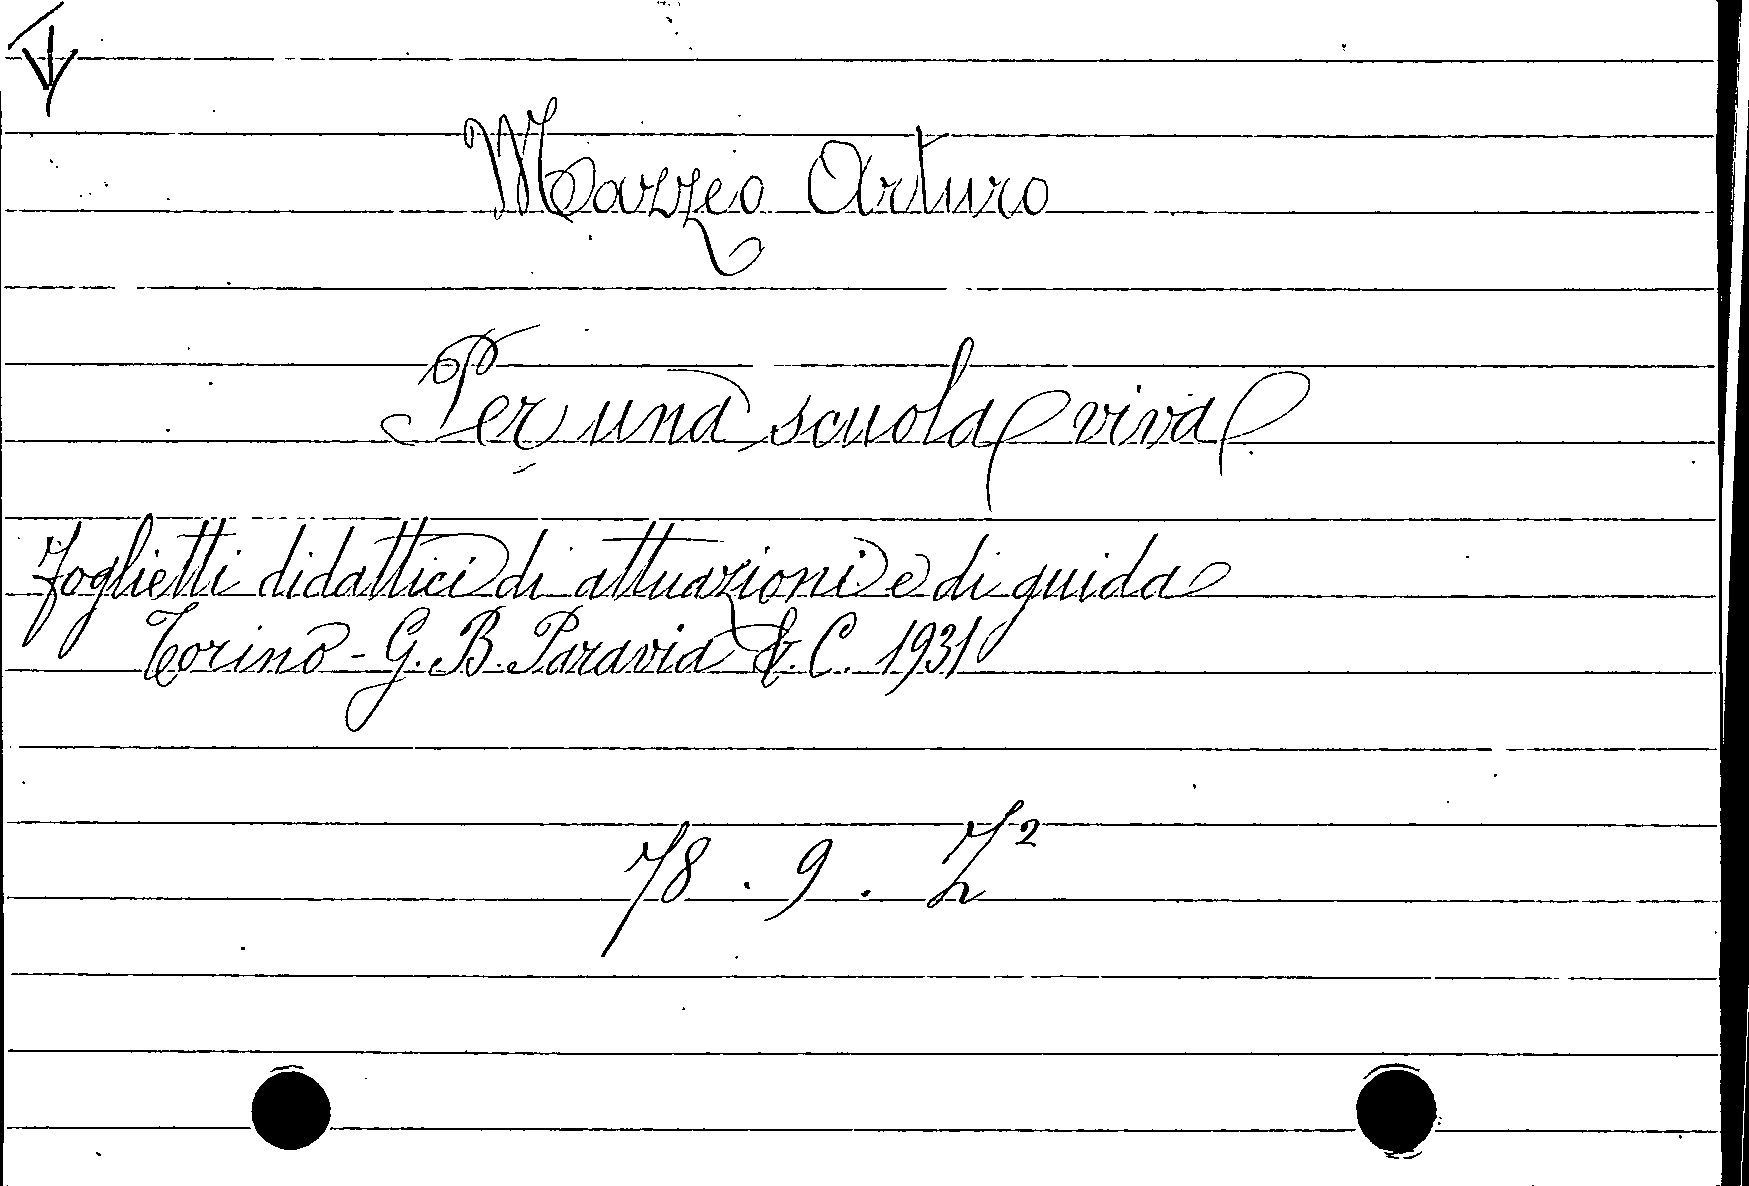 Mazzeo Arturo
Per una scuola viva
Foglietti didattici di attuazioni e di guida
Torino - G. B. Paravia & C. 1931
78 . 9 . Z²